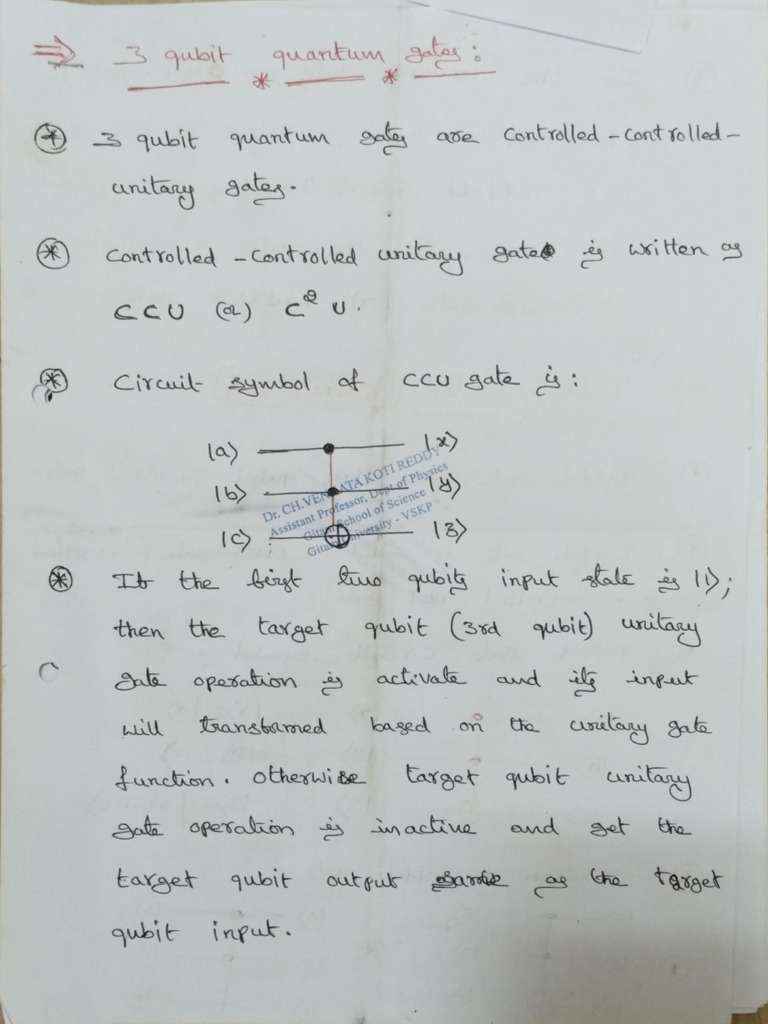 ⇒ 3 qubit quantum gates:
3 qubit quantum gates are controlled-controlled-
unitary gates.
controlled-controlled unitary gate is written as
CCU (or) C² U.
Circuit symbol of CCU gate is:
|a> |x>
|b> |y>
|c> |z>
Dr. CH.VENKATA KOTI REDDY
Assistant Professor, Dept of Physics
Gitam School of Science
Gitam University - VSKP
If the first two qubits input state is |1>;
then the target qubit (3rd qubit) unitary
gate operation is activate and its input
will transformed based on the unitary gate
function. otherwise target qubit unitary
gate operation is inactive and get the
target qubit output same as the target
qubit input.